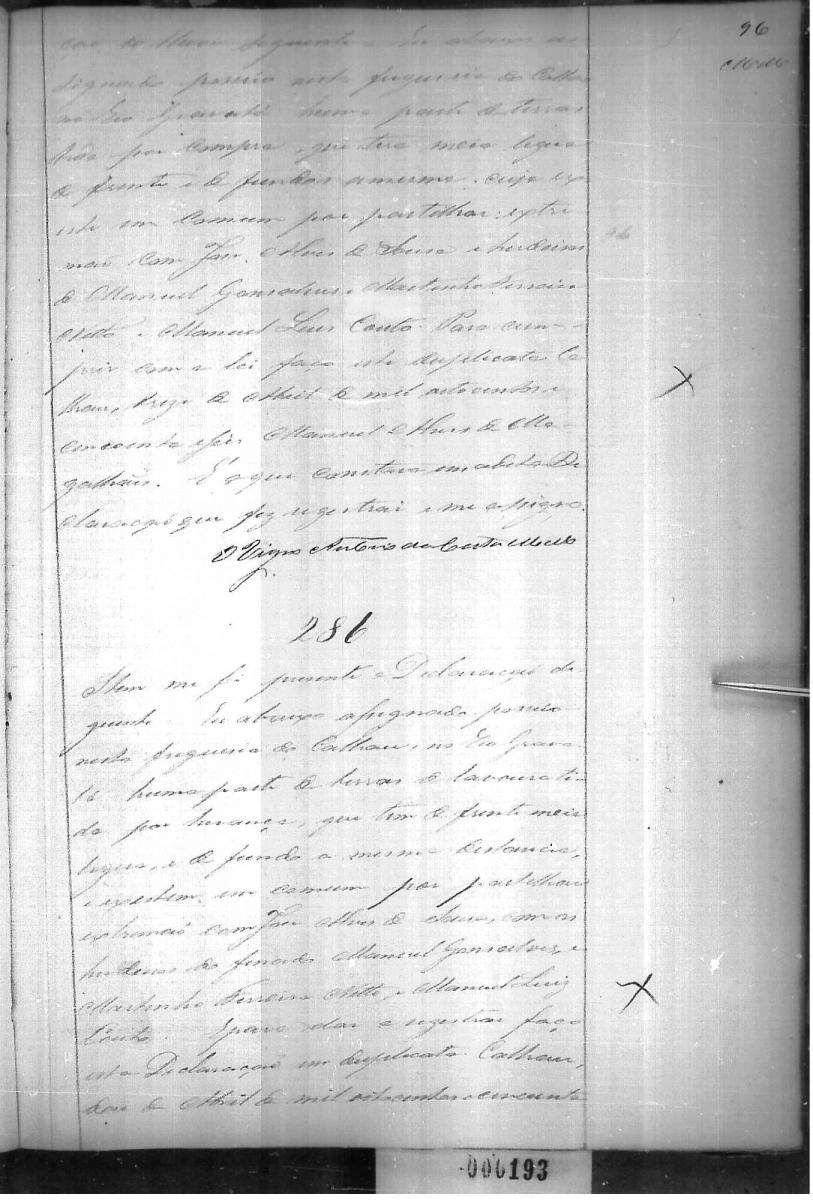 96
Mello
ção do theor seguinte. Eu abaixo as
signado possuo nesta freguesia do Calhau
no Rio Gravatá huma parte de terras
tida por compra, que tera meia legua
de frente e de fundos a mesma, cuja ex
iste em comum por partilhar: extre
mão com José Alves de Sousa e herdeiros
de Manuel Gonsalves, Martinho Ferreira
Netto e Manuel Luis Couto. Para cum-
prir com a lei faço esta duplicata Ca
lhau, treze de Abril de mil oito centos e
cincoenta e seis Manuel Alves de Ma-
galhães. É o que constava em a dita De
claração que fiz registrar e me assigno.
O Vigro Antonio da Costa Mello
286
Item me foi presente a Declaração se
guinte. Eu abaixo assignado possuo
nesta freguesia do Calhau, no Rio Grava
tá huma parte de terras de lavoura ti-
da por herança, que tem de frente meia
legua, e de fundo a mesma distancia,
e existem em comum por partilhar
extremão com José Alves de Sousa, com os
herdeiros do finado Manuel Gonsalves, e
Martinho Ferreira Netto, e Manuel Luiz
Couto. E para dar a registrar faço
esta Declaração em duplicata. Calhau,
de Abril de mil oitocentos e cincoenta
000193